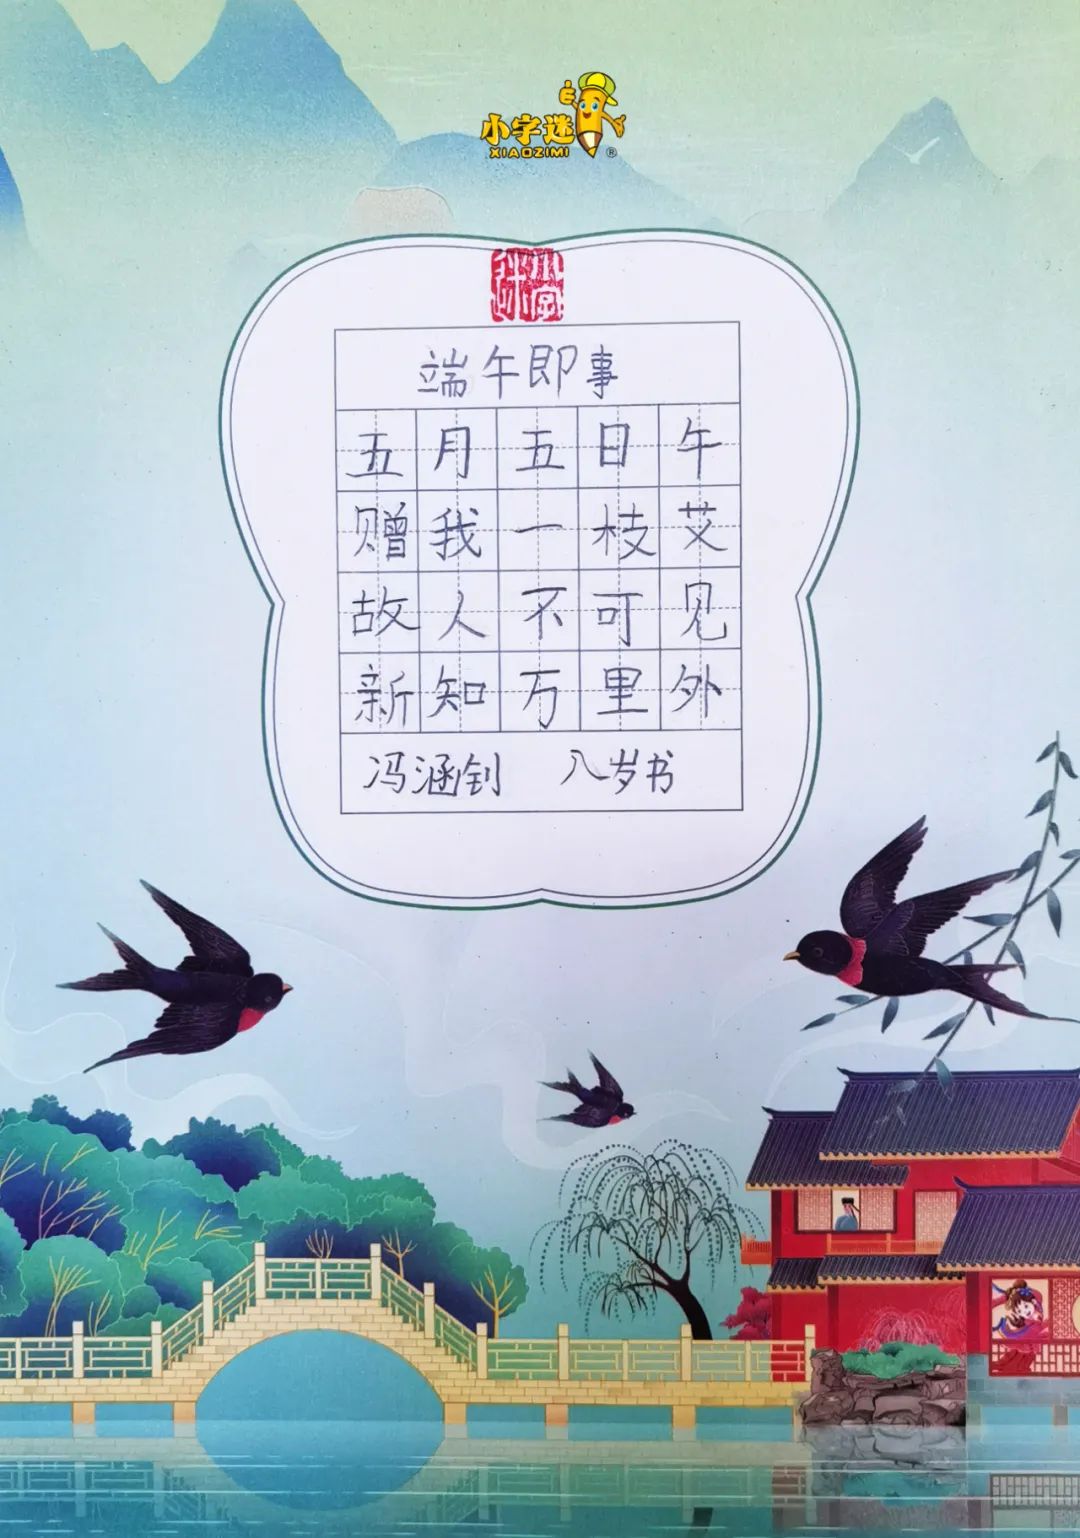 小字迷
XIAOZIMI
®
小字迷
端午即事
五月五日午
赠我一枝艾
故人不可见
新知万里外
冯涵钊 八岁书